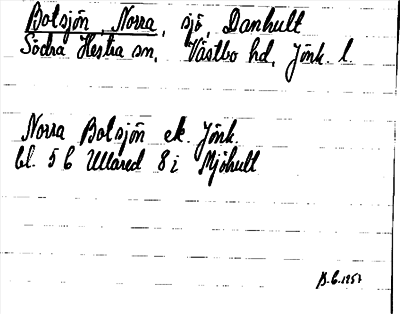 Bolsjön, Norra, sjö, Danhult
Södra Hestra sn, Västbo hd, Jönk. l.
Norra Bolsjön ek. Jönk.
bl. 5 C Ullared 8 i Mjöhult
B.G. 1957